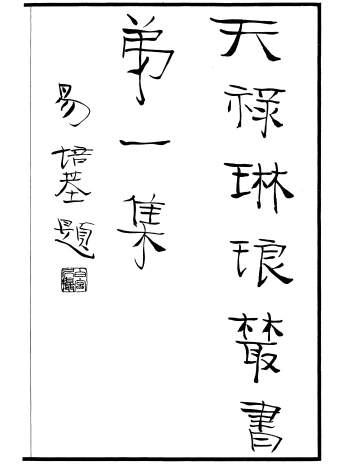 天祿琳琅叢書
弟一集
易培基題